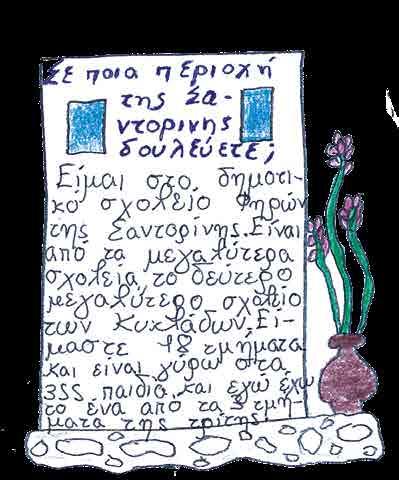 Σε ποια περιοχή
της Σα-
ντορινης
δουλεύετε;
Είμαι στο δημοτι-
κό σχολείο Φηρών
της Σαντορίνης. Είναι
από τα μεγαλύτερα
σχολεία, το δεύτερο
μεγαλύτερο σχολείο
των Κυκλάδων. Εί-
μαστε 18 τμήματα
και είναι γύρω στα
355 παιδιά και εγώ έχω
το ένα από τα 3 τμή-
ματα της τρίτης.